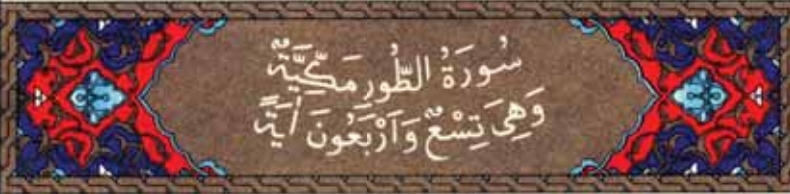 سُورَةُ الطُّورِ مَكِّيَّةٌ
وَهِىَ تِسْعٌ وَاَرْبَعُونَ اٰيَةً